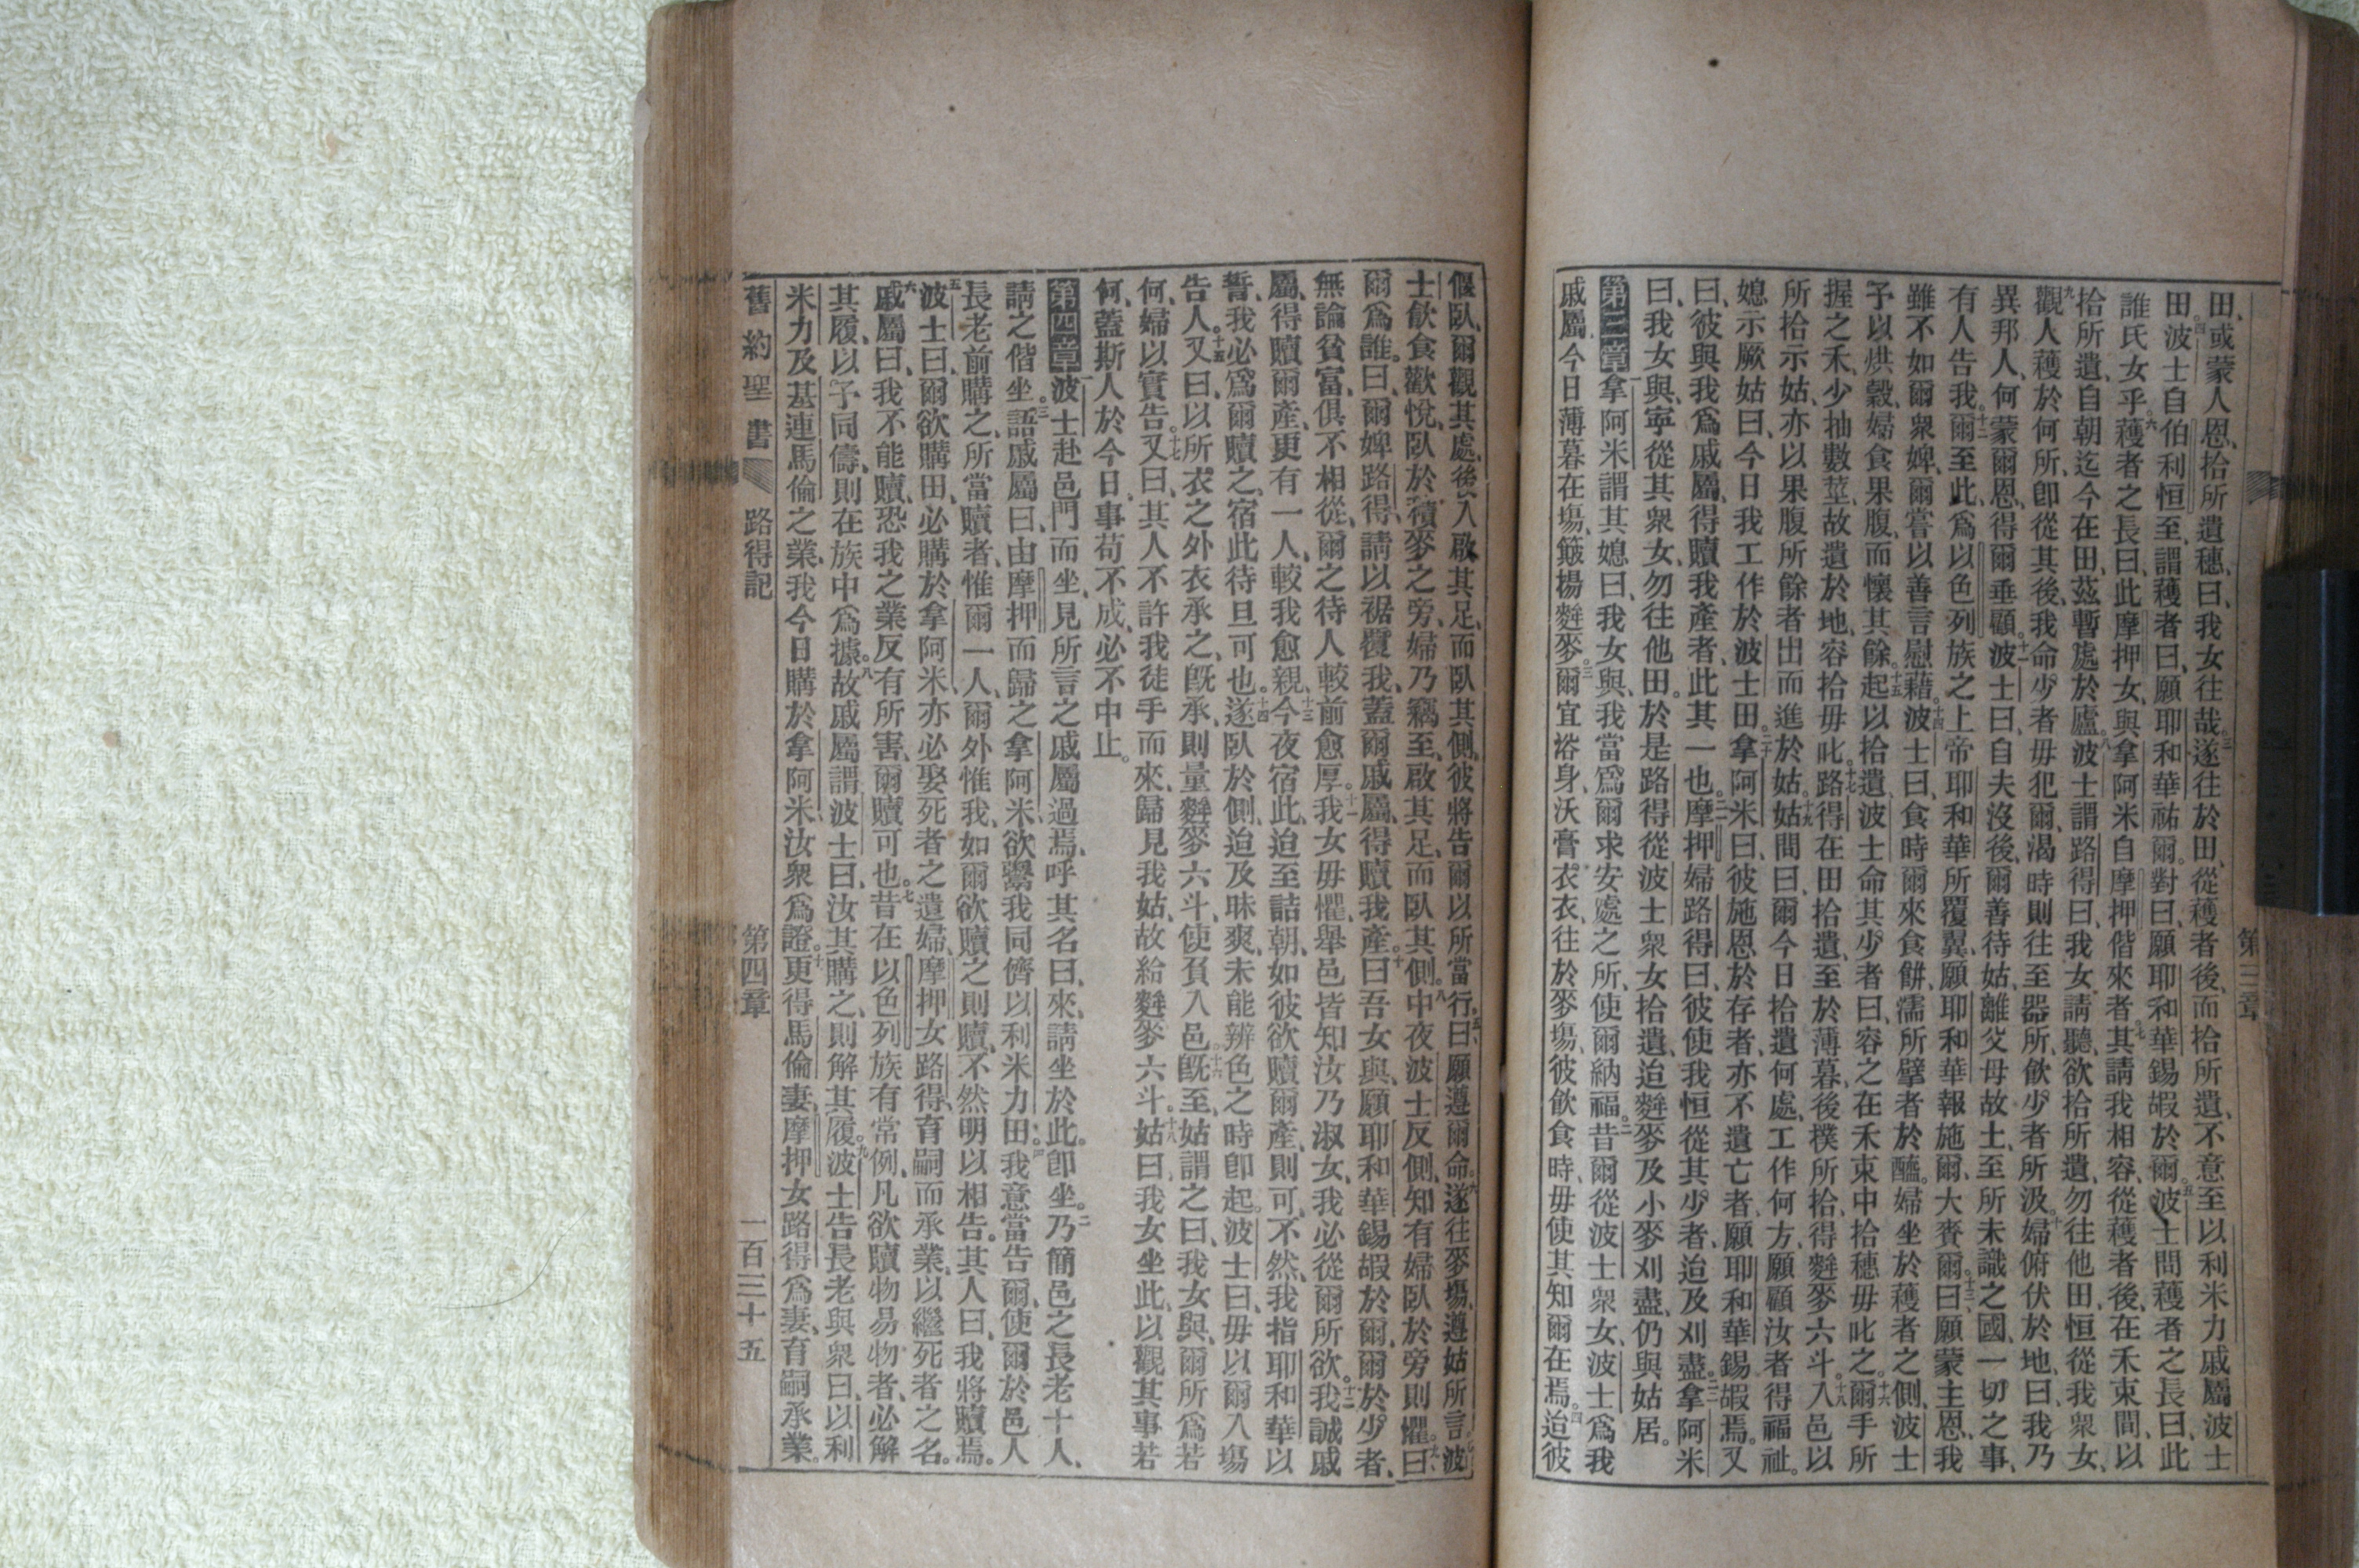 田、或蒙人恩、拾所遺穗、曰、我女往哉。三遂往於田、從穫者後、而拾所遺、不意至以利米力戚屬波士
田。四波士自伯利恒至、謂穫者曰、願耶和華祐爾。對曰、願耶和華錫嘏於爾。五波士問穫者之長曰、此
誰氏女乎。六穫者之長曰、此摩押女、與拿阿米自摩押偕來者。七其請我相容、從穫者後、在禾束間、以
拾所遺、自朝迄今在田、茲暫處於廬。八波士謂路得曰、我女、請聽、欲拾所遺、勿往他田、恒從我衆女、
九觀人穫於何所、卽從其後、我命少者毋犯爾、渴時則往至器所、飲少者所汲。十婦俯伏於地、曰、我乃
異邦人、何蒙爾恩、得爾垂顧。十一波士曰、自夫沒後、爾善待姑、離父母故土、至所未識之國、一切之事、
有人告我。十二爾至此、爲以色列族之上帝耶和華所覆翼、願耶和華報施爾、大賚爾。十三曰、願蒙主恩、我
雖不如爾衆婢、爾嘗以善言慰藉。十四波士曰、食時爾來食餅、濡所擘者於醯。婦坐於穫者之側、波士
予以烘穀、婦食果腹、而懷其餘。十五起以拾遺、波士命其少者曰、容之在禾束中拾穗、毋叱之。十六爾手所
握之禾、少抽數莖、故遺於地、容拾毋叱。十七路得在田拾遺、至於薄暮、後撲所拾、得麰麥六斗。十八入邑以
所拾示姑、亦以果腹所餘者出而進於姑。十九姑問曰、爾今日拾遺何處、工作何方、願顧汝者得福祉。
媳示厥姑曰、今日我工作於波士田。二十拿阿米曰、彼施恩於存者、亦不遺亡者、願耶和華錫嘏焉。又
曰、彼與我爲戚屬、得贖我產者、此其一也。二一摩押婦路得曰、彼使我恒從其少者、迨及刈盡。二二拿阿米
曰、我女與、寧從其衆女、勿往他田。於是路得從波士衆女拾遺、迨麰麥及小麥刈盡、仍與姑居。
第三章一拿阿米謂其媳曰、我女與、我當爲爾求安處之所、使爾納福。二昔爾從波士衆女、波士爲我
戚屬、今日薄暮在塲、簸揚麰麥。三爾宜浴身、沃膏衣衣、往於麥塲、彼飲食時、毋使其知爾在焉。四迨彼
偃臥、爾觀其處、後入啟其足、而臥其側、彼將告爾以所當行。五曰、願遵爾命。六遂往麥塲、遵姑所言。七波
士飲食歡悅、臥於積麥之旁、婦乃竊至、啟其足、而臥其側。八中夜波士反側、知有婦臥於旁則懼。九曰、
爾爲誰。曰、爾婢路得、請以裾覆我、蓋爾戚屬、得贖我產。十曰、吾女與、願耶和華錫嘏於爾、爾於少者、
無論貧富、俱不相從、爾之待人、較前愈厚。十一我女毋懼、舉邑皆知汝乃淑女、我必從爾所欲。十二我誠戚
屬、得贖爾產、更有一人、較我愈親。十三今夜宿此、迨至詰朝、如彼欲贖爾產、則可、不然、我指耶和華以
誓、我必爲爾贖之、宿此待旦可也。十四遂臥於側、迨及昧爽、未能辨色之時卽起。波士曰、毋以爾入塲
告人。十五又曰、以所衣之外衣承之、旣承、則量麰麥六斗、使負入邑。十六旣至、姑謂之曰、我女與、爾所爲若
何、婦以實告。十七又曰、其人不許我徒手而來、歸見我姑、故給麰麥六斗。十八姑曰、我女坐此、以觀其事若
何、蓋斯人於今日、事苟不成、必不中止。
第四章一波士赴邑門而坐、見所言之戚屬過焉、呼其名曰、來、請坐於此。卽坐。二乃簡邑之長老十人、
請之偕坐。三語戚屬曰、由摩押而歸之拿阿米、欲鬻我同儕以利米力田。四我意當告爾、使爾於邑人
長老前購之、所當贖者、惟爾一人、爾外惟我、如爾欲贖之則贖、不然明以相告。其人曰、我將贖焉。
五波士曰、爾欲購田、必購於拿阿米、亦必娶死者之遺婦、摩押女路得、育嗣而承業、以繼死者之名。
六戚屬曰、我不能贖、恐我之業反有所害、爾贖可也。七昔在以色列族有常例、凡欲贖物易物者、必解
其履、以予同儔、則在族中爲據。八故戚屬謂波士曰、汝其購之、則解其履。九波士告長老與衆曰、以利
米力及基連馬倫之業、我今日購於拿阿米、汝衆爲證。十更得馬倫妻、摩押女路得爲妻、育嗣承業。
舊約聖書 路得記 第四章 一百三十五
第三章